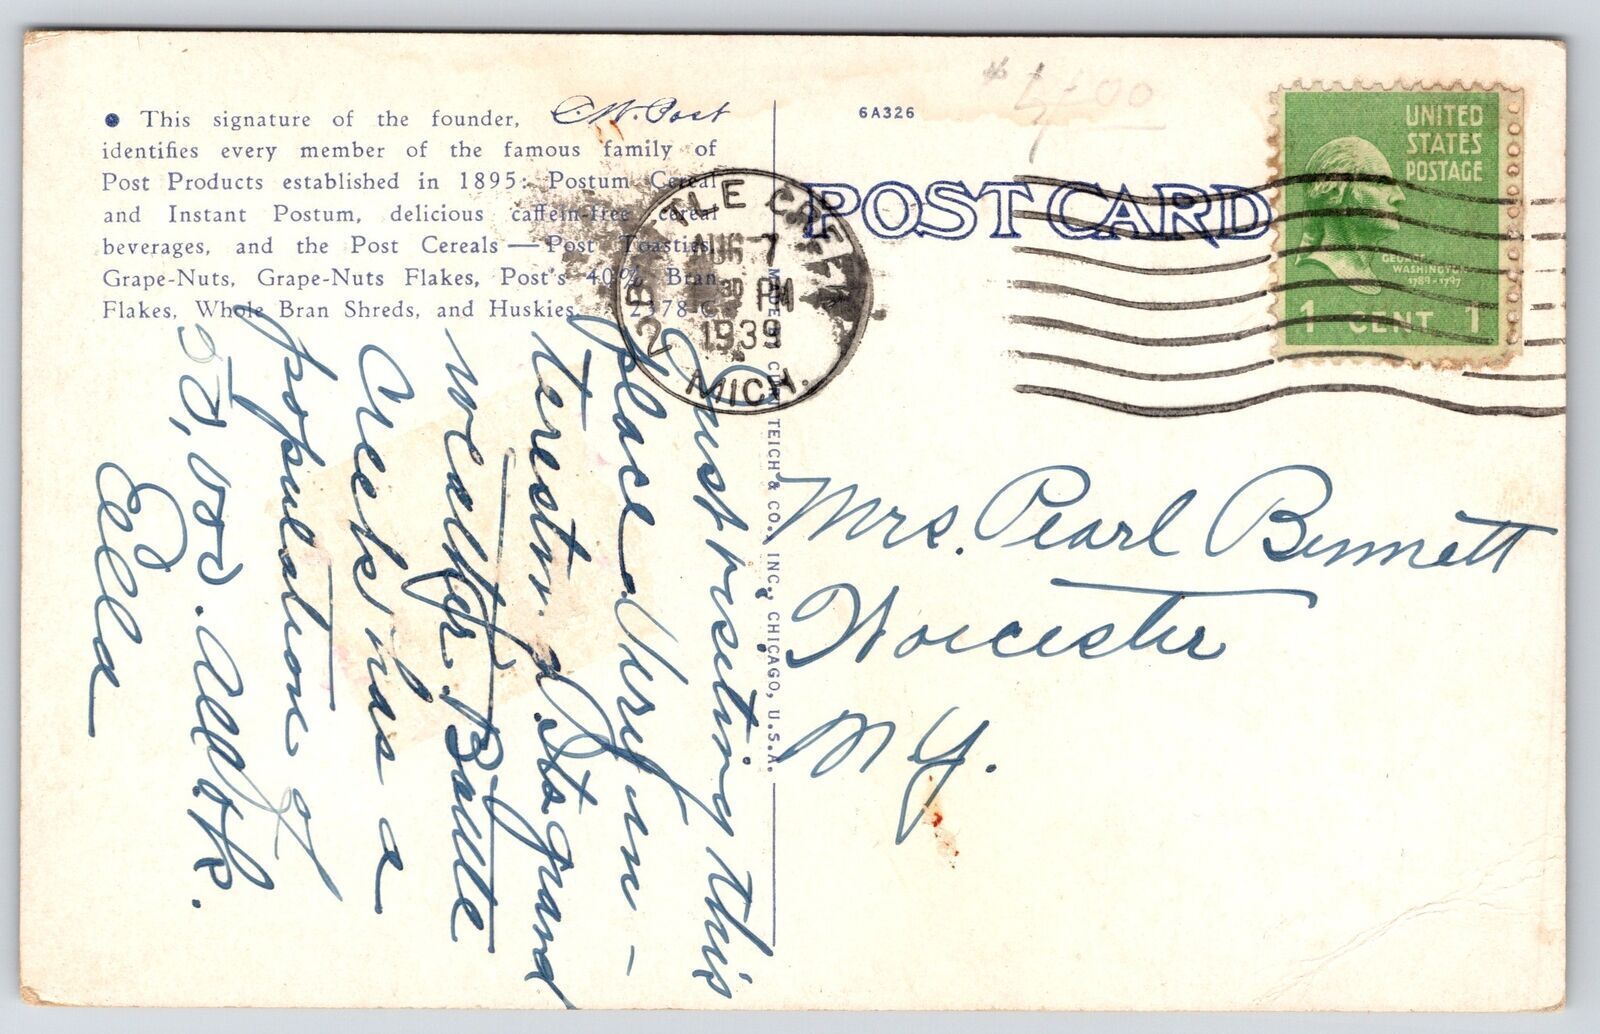 ● This signature of the founder, C.W. Post
identifies every member of the famous family of
Post Products established in 1895: Postum Cereal
and Instant Postum, delicious caffein-free cereal
beverages, and the Post Cereals — Post Toasties,
Grape-Nuts, Grape-Nuts Flakes, Post's 40% Bran
Flakes, Whole Bran Shreds, and Huskies. 2378 C
6A326
$4.00
POST CARD
UNITED
STATES
POSTAGE
GEORGE
WASHINGTON
1789-1797
1 CENT 1
AUG 7
30 PM
1939
MICH.
2
TEICH & CO., INC., CHICAGO, U.S.A.
Just visiting this
place. Very in-
terestin. Its grand
weather. Battle
Creek has a
population of
All O.K.
Mrs. Pearl Bennett
Worcester
N Y.